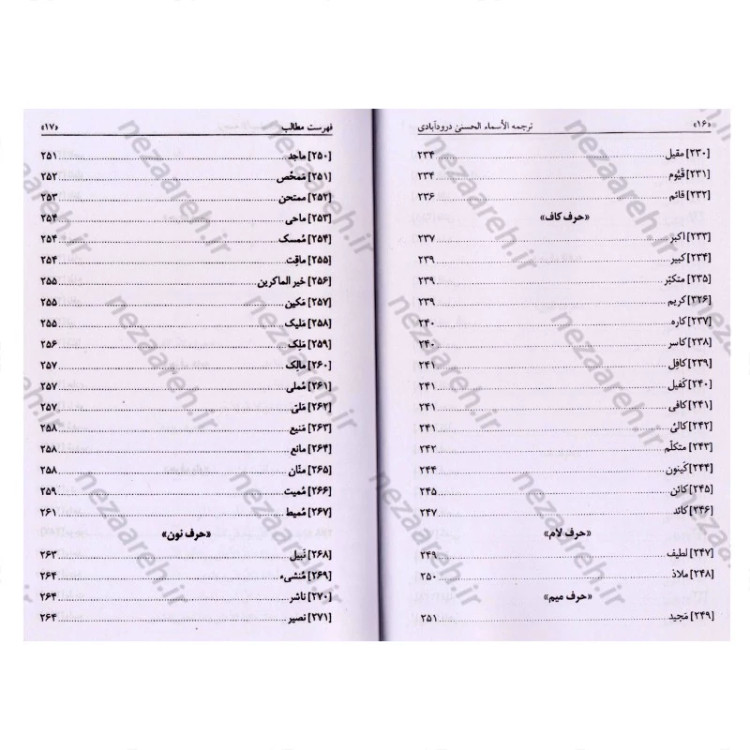 «۱۶» ترجمه الأسماء الحسنی درودآبادی
[۲۳۰] مقبل ۲۳۴
[۲۳۱] قَیُّوم ۲۳۴
[۲۳۲] قائم ۲۳۶
«حرف کاف»
[۲۳۳] اکبر ۲۳۷
[۲۳۴] کبیر ۲۳۹
[۲۳۵] متکبّر ۲۳۹
[۲۳۶] کریم ۲۳۹
[۲۳۷] کاره ۲۴۰
[۲۳۸] کاسر ۲۴۰
[۲۳۹] کافِل ۲۴۱
[۲۴۰] کَفیل ۲۴۱
[۲۴۱] کافی ۲۴۱
[۲۴۲] کالئ ۲۴۱
[۲۴۳] متکلّم ۲۴۲
[۲۴۴] کَینون ۲۴۴
[۲۴۵] کائن ۲۴۵
[۲۴۶] کائد ۲۴۷
«حرف لام»
[۲۴۷] لطیف ۲۴۹
[۲۴۸] ملاذ ۲۵۰
«حرف میم»
[۲۴۹] مَجید ۲۵۱
فهرست مطالب «۱۷»
[۲۵۰] ماجد ۲۵۱
[۲۵۱] مُمَحّص ۲۵۲
[۲۵۲] ممتحن ۲۵۳
[۲۵۳] ماحی ۲۵۴
[۲۵۴] مُمسک ۲۵۴
[۲۵۵] ماقِت ۲۵۴
[۲۵۶] خیر الماکرین ۲۵۵
[۲۵۷] مَکین ۲۵۵
[۲۵۸] مَلیک ۲۵۵
[۲۵۹] مَلِک ۲۵۶
[۲۶۰] مالِک ۲۵۷
[۲۶۱] مُملی ۲۵۷
[۲۶۲] مَلیّ ۲۵۷
[۲۶۳] مَنیع ۲۵۸
[۲۶۴] مانع ۲۵۸
[۲۶۵] منّان ۲۵۸
[۲۶۶] مُمیت ۲۵۹
[۲۶۷] مُمیط ۲۶۱
«حرف نون»
[۲۶۸] نَبیل ۲۶۳
[۲۶۹] مُنشیء ۲۶۴
[۲۷۰] ناشر ۲۶۴
[۲۷۱] نَصیر ۲۶۴
nezaareh.ir
nezaareh.ir
nezaareh.ir
nezaareh.ir
nezaareh.ir
nezaareh.ir
nezaareh.ir
nezaareh.ir